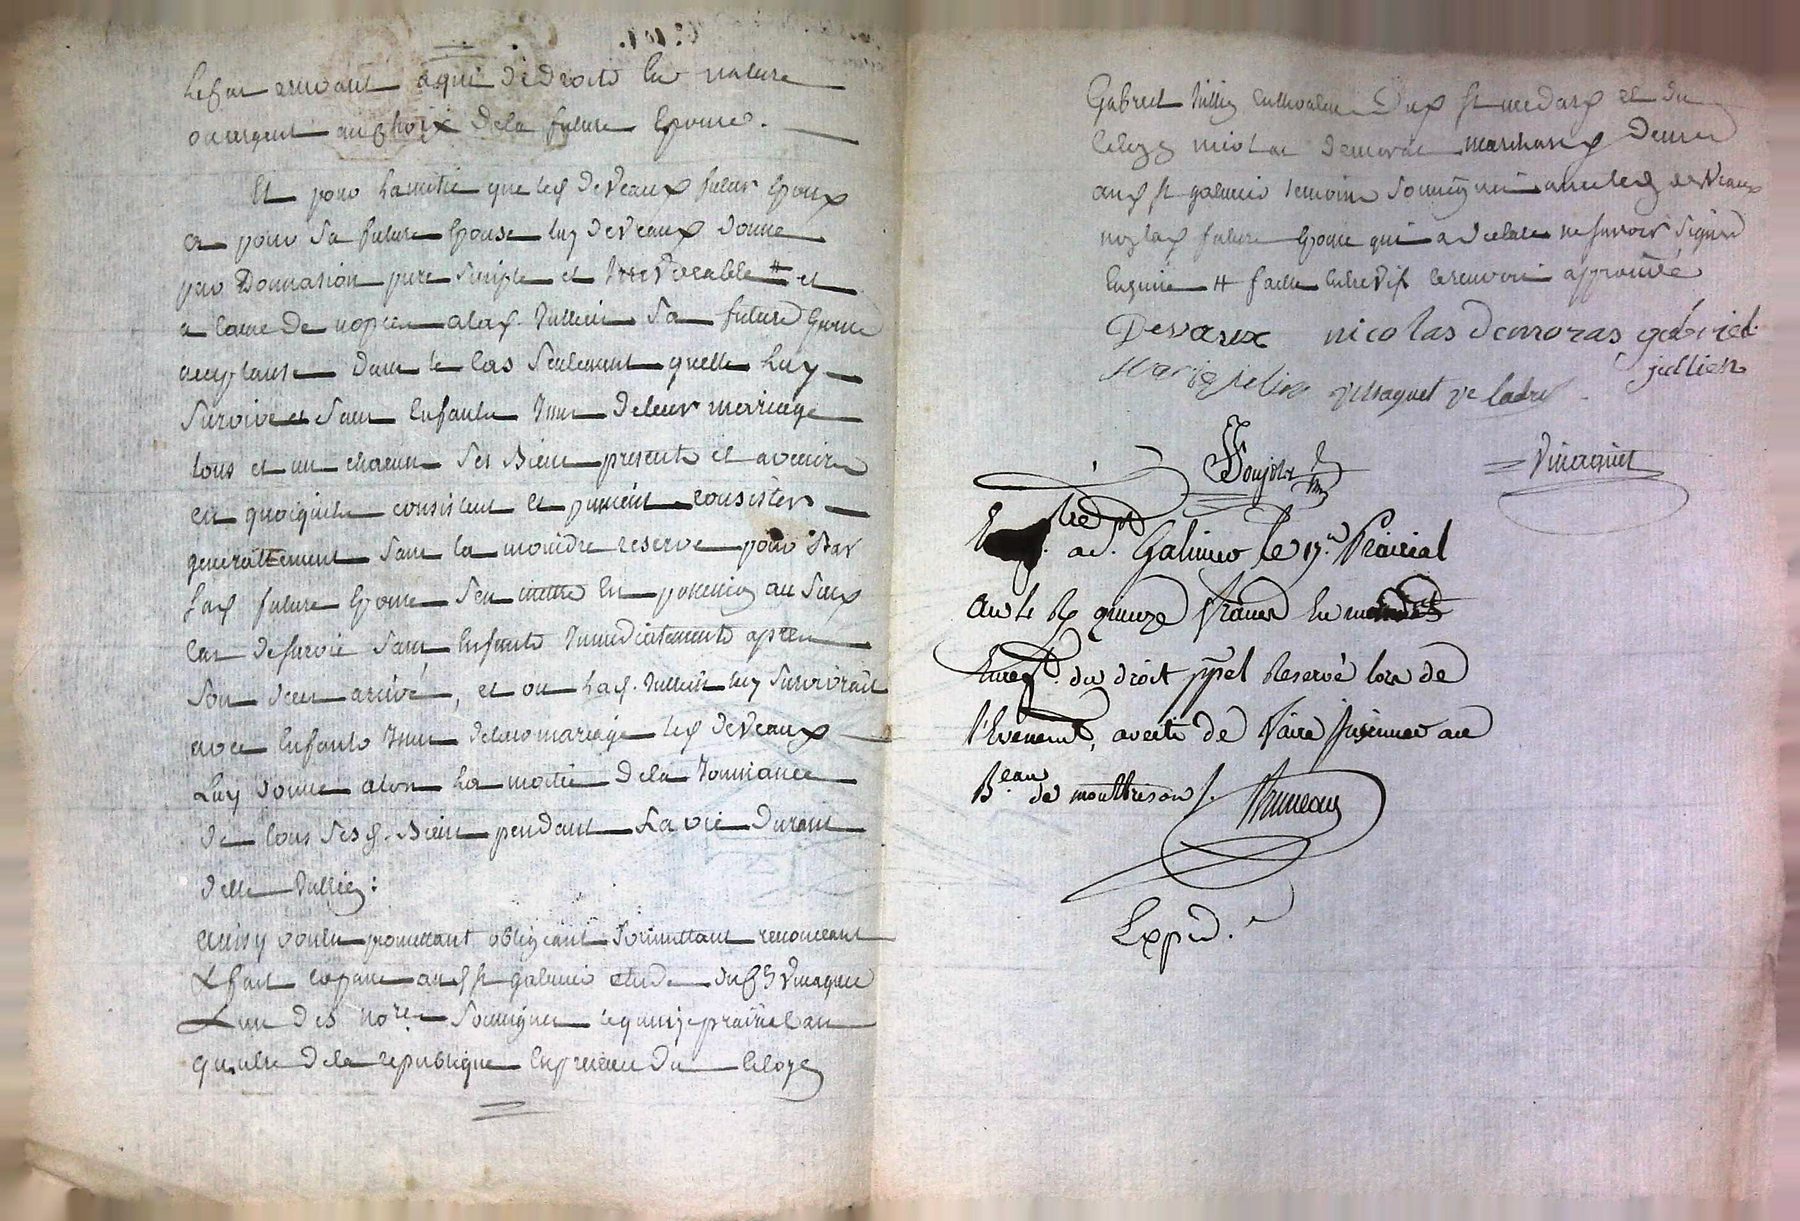 le cas arrivant a qui de droit En nature
ou argent au choix dela future Epouse.
Et pour lamitie que led deveaux futur Epoux
a pour sa future Epouse luy deveaux donne
par Donnation pure simple et Irrevocable # et
a cause de nopces alad. Jullien sa future Epouse
acceptante dans le cas seulement quelle luy
survive et sans Enfants Issus deleur mariage
tous et un chacuns ses Biens presents et avenirs
en quoiquils consistent et puissent consister
generallement sans la moindre reserve pour Par
lad future Epouse sen mettre En possession au sud
cas desurvie sans Enfants Immediatement apres
son deces arrivé, et ou lad. Jullien luy survivrait
avec Enfants Issus deleur mariage led deveaux
luy donne alors la moitie dela Jouissance
de tous sesd. Biens pendant la vie durant
delle Jullien :
ainsy voulu promettant obligeant soumettant renonceant
& fait et passé aud st galmier etude dud Vinaquet
Lun des nores soussignes le quinze prairial an
quatre dela republique En presence du Citoyen
Gabriel Jullien cultivateur Dud st medard et du
Citoyen nicolas demoras marchand Demeurant
aud st galmier temoins soussignés avec led deveaux
non lad future Epouse qui a declaré ne savoir signer
Enquise # faite entrevifs le renvoi approuvé
Devaux nicolas demoras gabriel
jullien
Vinaquet
tré
a St. Galmier le 17e. Prairial
an 4 R/ quinze francs En mandats
Enregt. du droit ppel Reservé lors de
l'Evenemt, averti de faire Insinuer au
Beau. de montbrison /. Bruneau
Expéd.